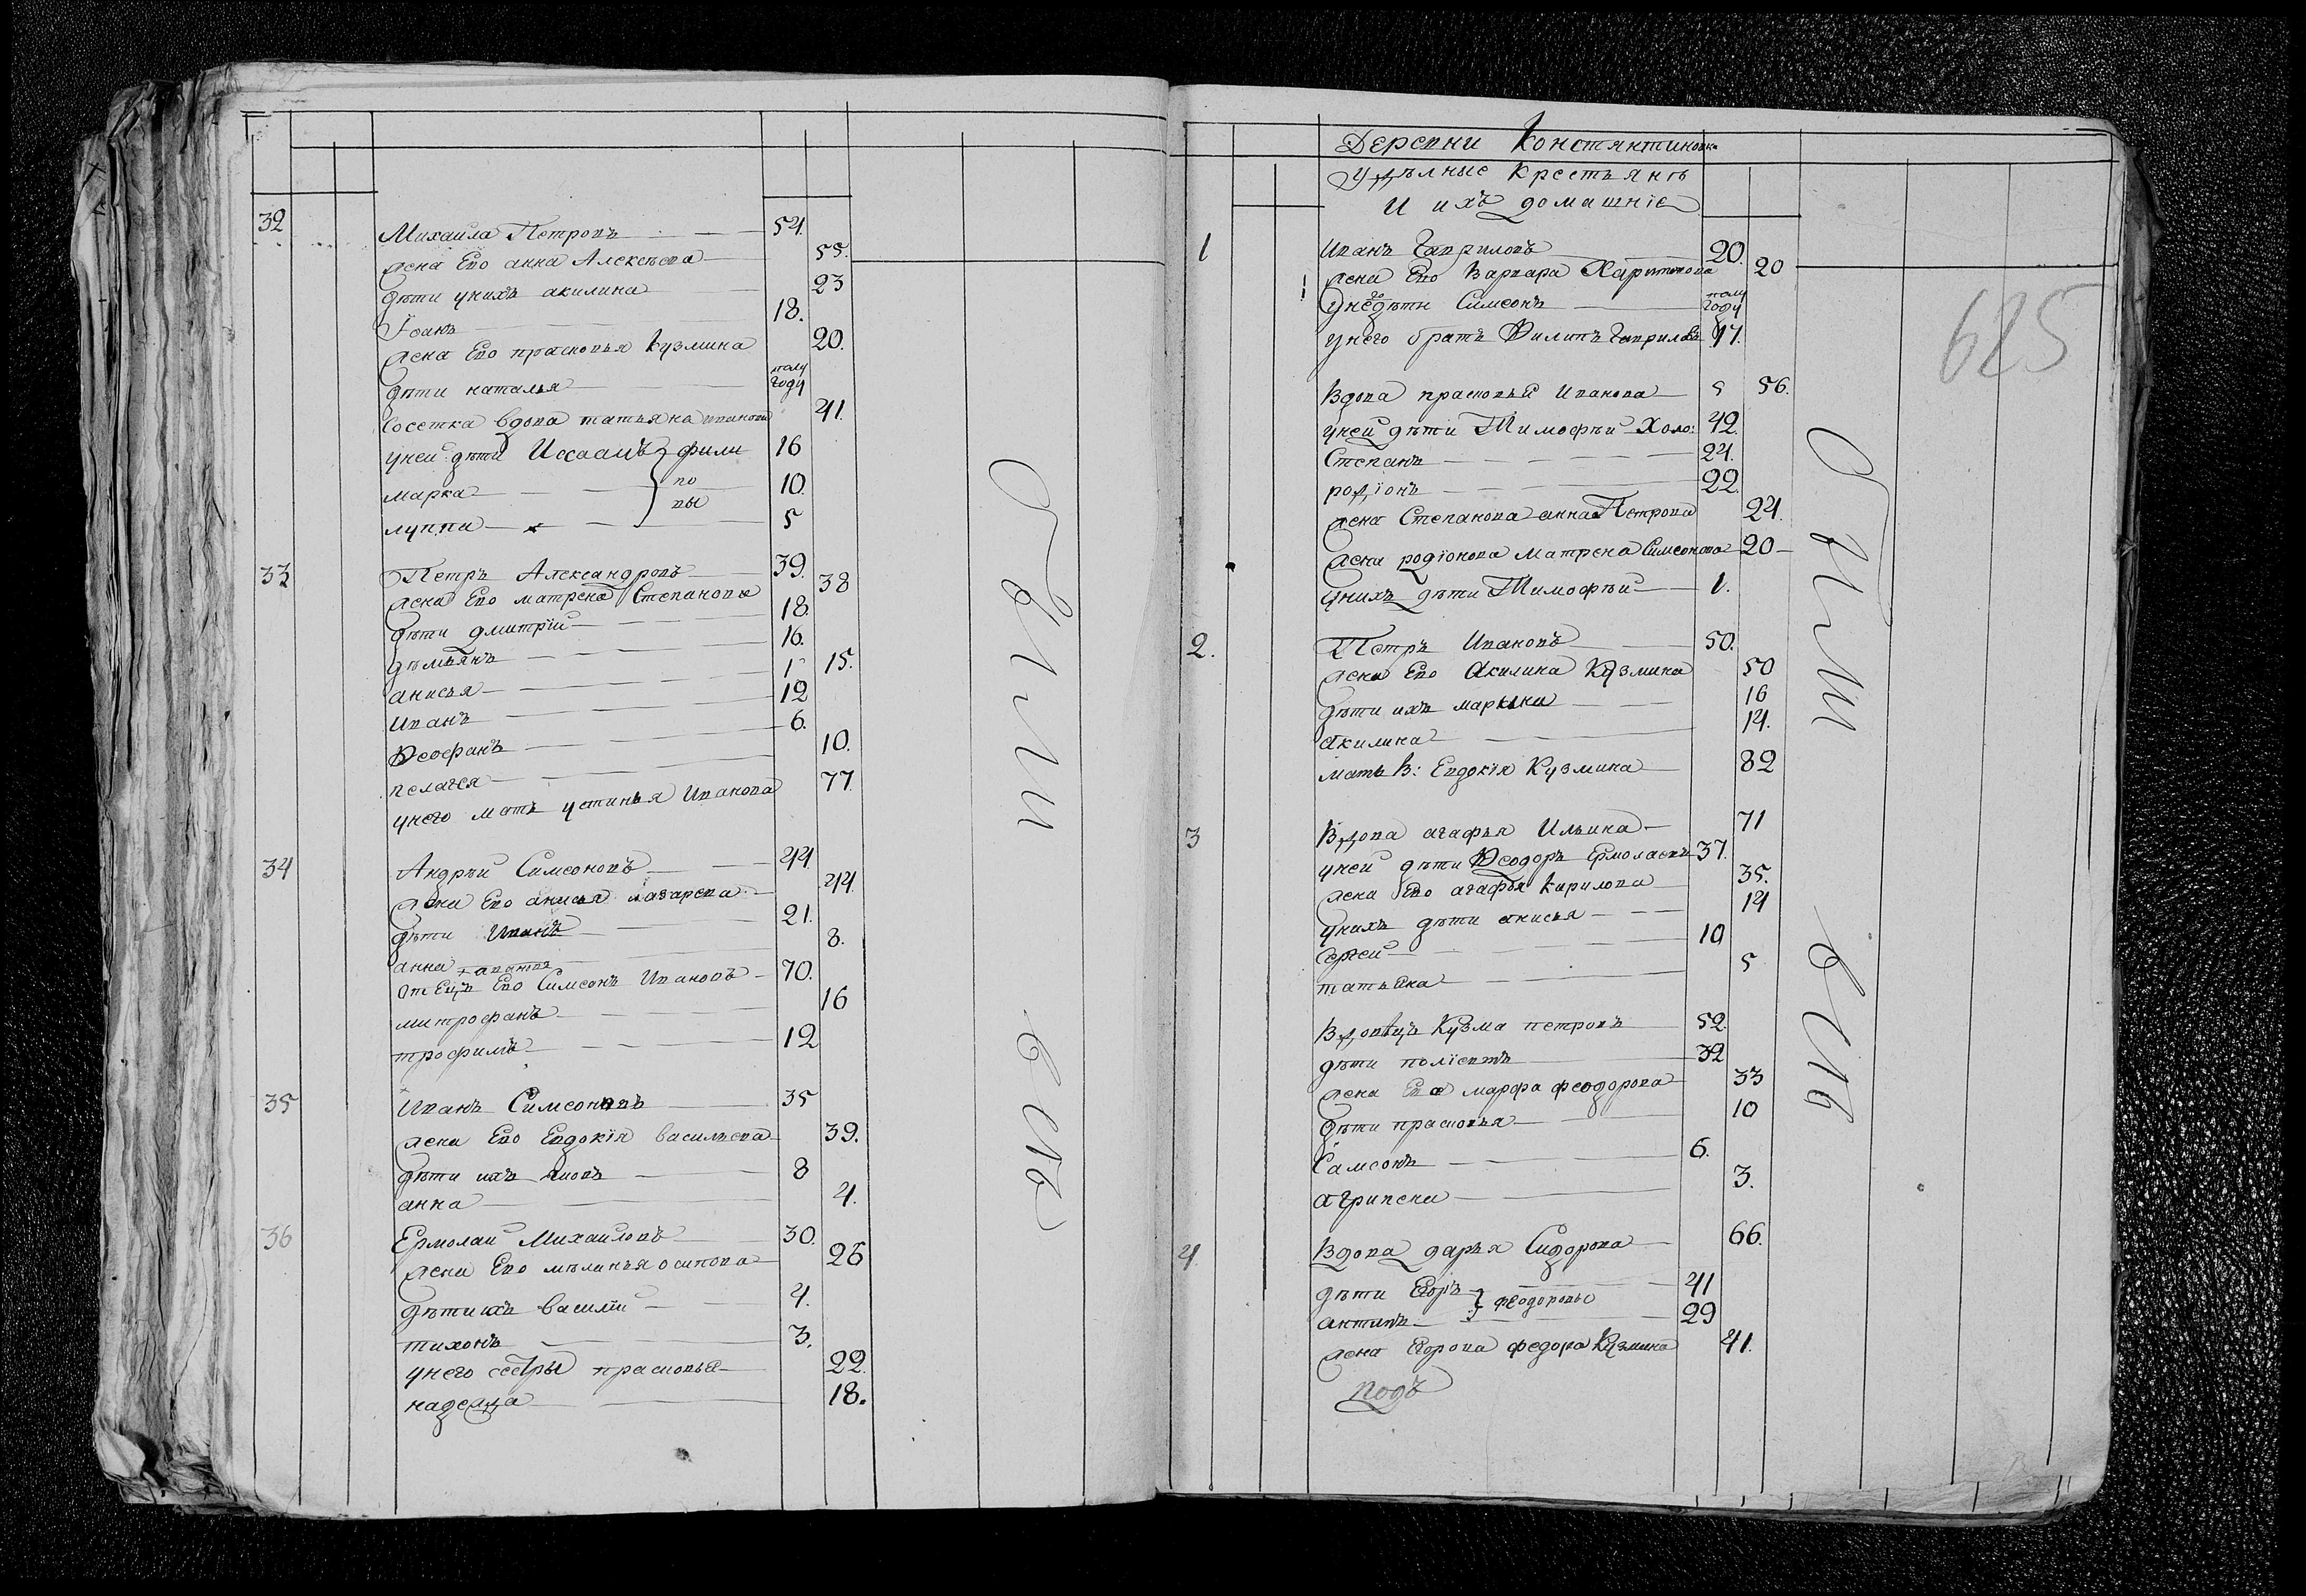 32 Михаила Петровъ 54.
жена Его анна Алексѣева 55.
дѣти унихъ акилина 23
Іоанъ 18.
жена Его прасковья Кузмина 20.
дѣти наталья полу году
Сосетка вдова татьяна иванова 41.
уней дѣти Иссаакъ фили 16
марка по 10.
луппа вы 5
33 Петръ Александровъ 39.
жена Его матрена Степанова 38
дѣти дмитрій 18.
дѣмьянъ 16.
анисья 1 15.
Иванъ 12
Ѳеофанъ 6.
пелагея 10.
унего мать устинья Иванова 77.
34 Андрѣй Симеоновъ 44.
жена Его анисья лазарева 44.
дѣти Иванъ 21.
анна 8.
отЕцъ Его Симеонъ Ивановъ 70.
митрофанъ 16
трофимъ 12
35 Иванъ Симеоновъ 35
жена Его Евдокія васильева 39.
дѣти ихъ яковъ 8
анна 4.
36 Ермолай Михайловъ 30.
жена Его мѣланья осипова 26
дѣти ихъ василій 4.
тихонъ 3.
унего сестры прасковья 22.
надежда 18.
были
всѣ
Деревни Константиновки
Удѣлные Крестьянѣ
И ихъ домашніе
1 Иванъ Гавриловъ 20.
жена Его Варвара Харитонова 20
унего дѣти Симеонъ полу году
унего братъ Филипъ Гавриловъ 17.
Вдова прасковья Иванова 5 56.
уней дѣти Тимофѣй Холо: 42.
Степанъ 24.
родіонъ 22.
жена Степанова анна Петрова 24.
жена родіонова Матрена Симеонова 20
унихъ дѣти Тимофѣй 1.
2. Петръ Ивановъ 50.
жена Его Акилина Кузмина 50
дѣти ихъ марьяна 16
Акилина 14.
мать В: Евдокія Кузмина 82
3 Вдова агафья Ильина 71
уней дѣти Ѳеодоръ Ермолаевъ 37.
жена Его агафья Кирилова 35.
унихъ дѣти анисья 14
Сергей 10
татьяна 5
Вдовецъ Кузма петровъ 52.
дѣти поліевтъ 32
жена Его марфа феодорова 33
дѣти прасковья 10
Самсонъ 6.
агрипена 3.
4 Вдова дарья Сидорова 66.
дѣти Егоръ 41
феодоровы
антипъ 29
жена Егорова федора Кузмина 41.
подъ
625
были
всѣ